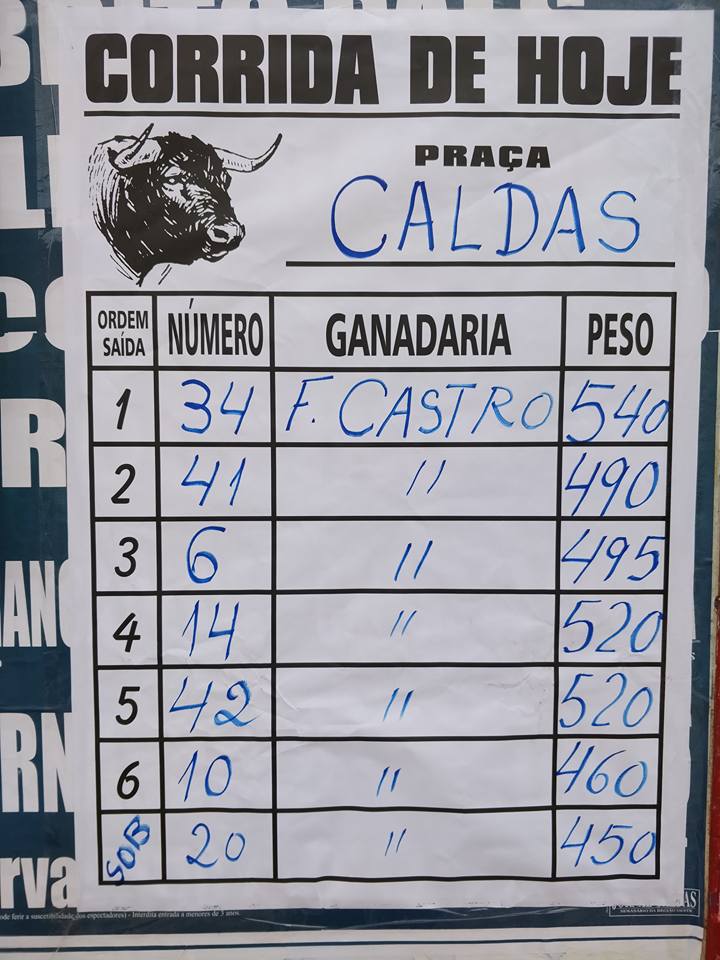 CORRIDA DE HOJE
PRAÇA
CALDAS
ORDEM SAÍDA NÚMERO GANADARIA PESO
1 34 F. CASTRO 540
2 41 " 490
3 6 " 495
4 14 " 520
5 42 " 520
6 10 " 460
SOB 20 " 450
ode ferir a suscetibilidade dos espectadores) - Interdita entrada a menores de 3 anos.